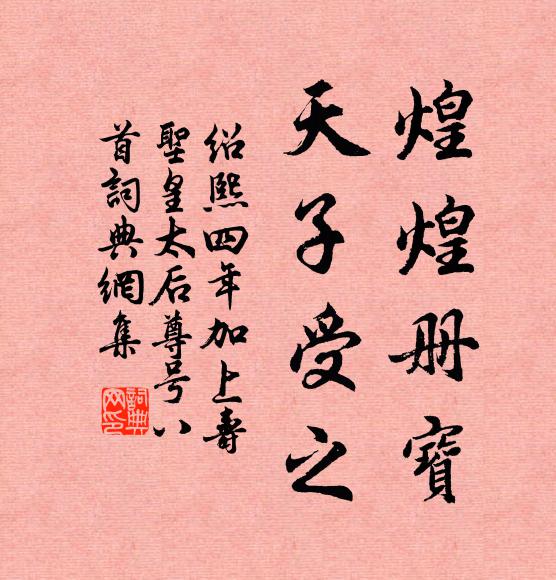 煌煌册寶
天子受之
紹熙四年加上壽
聖皇太后尊号八
首詞典網集
詞典网印